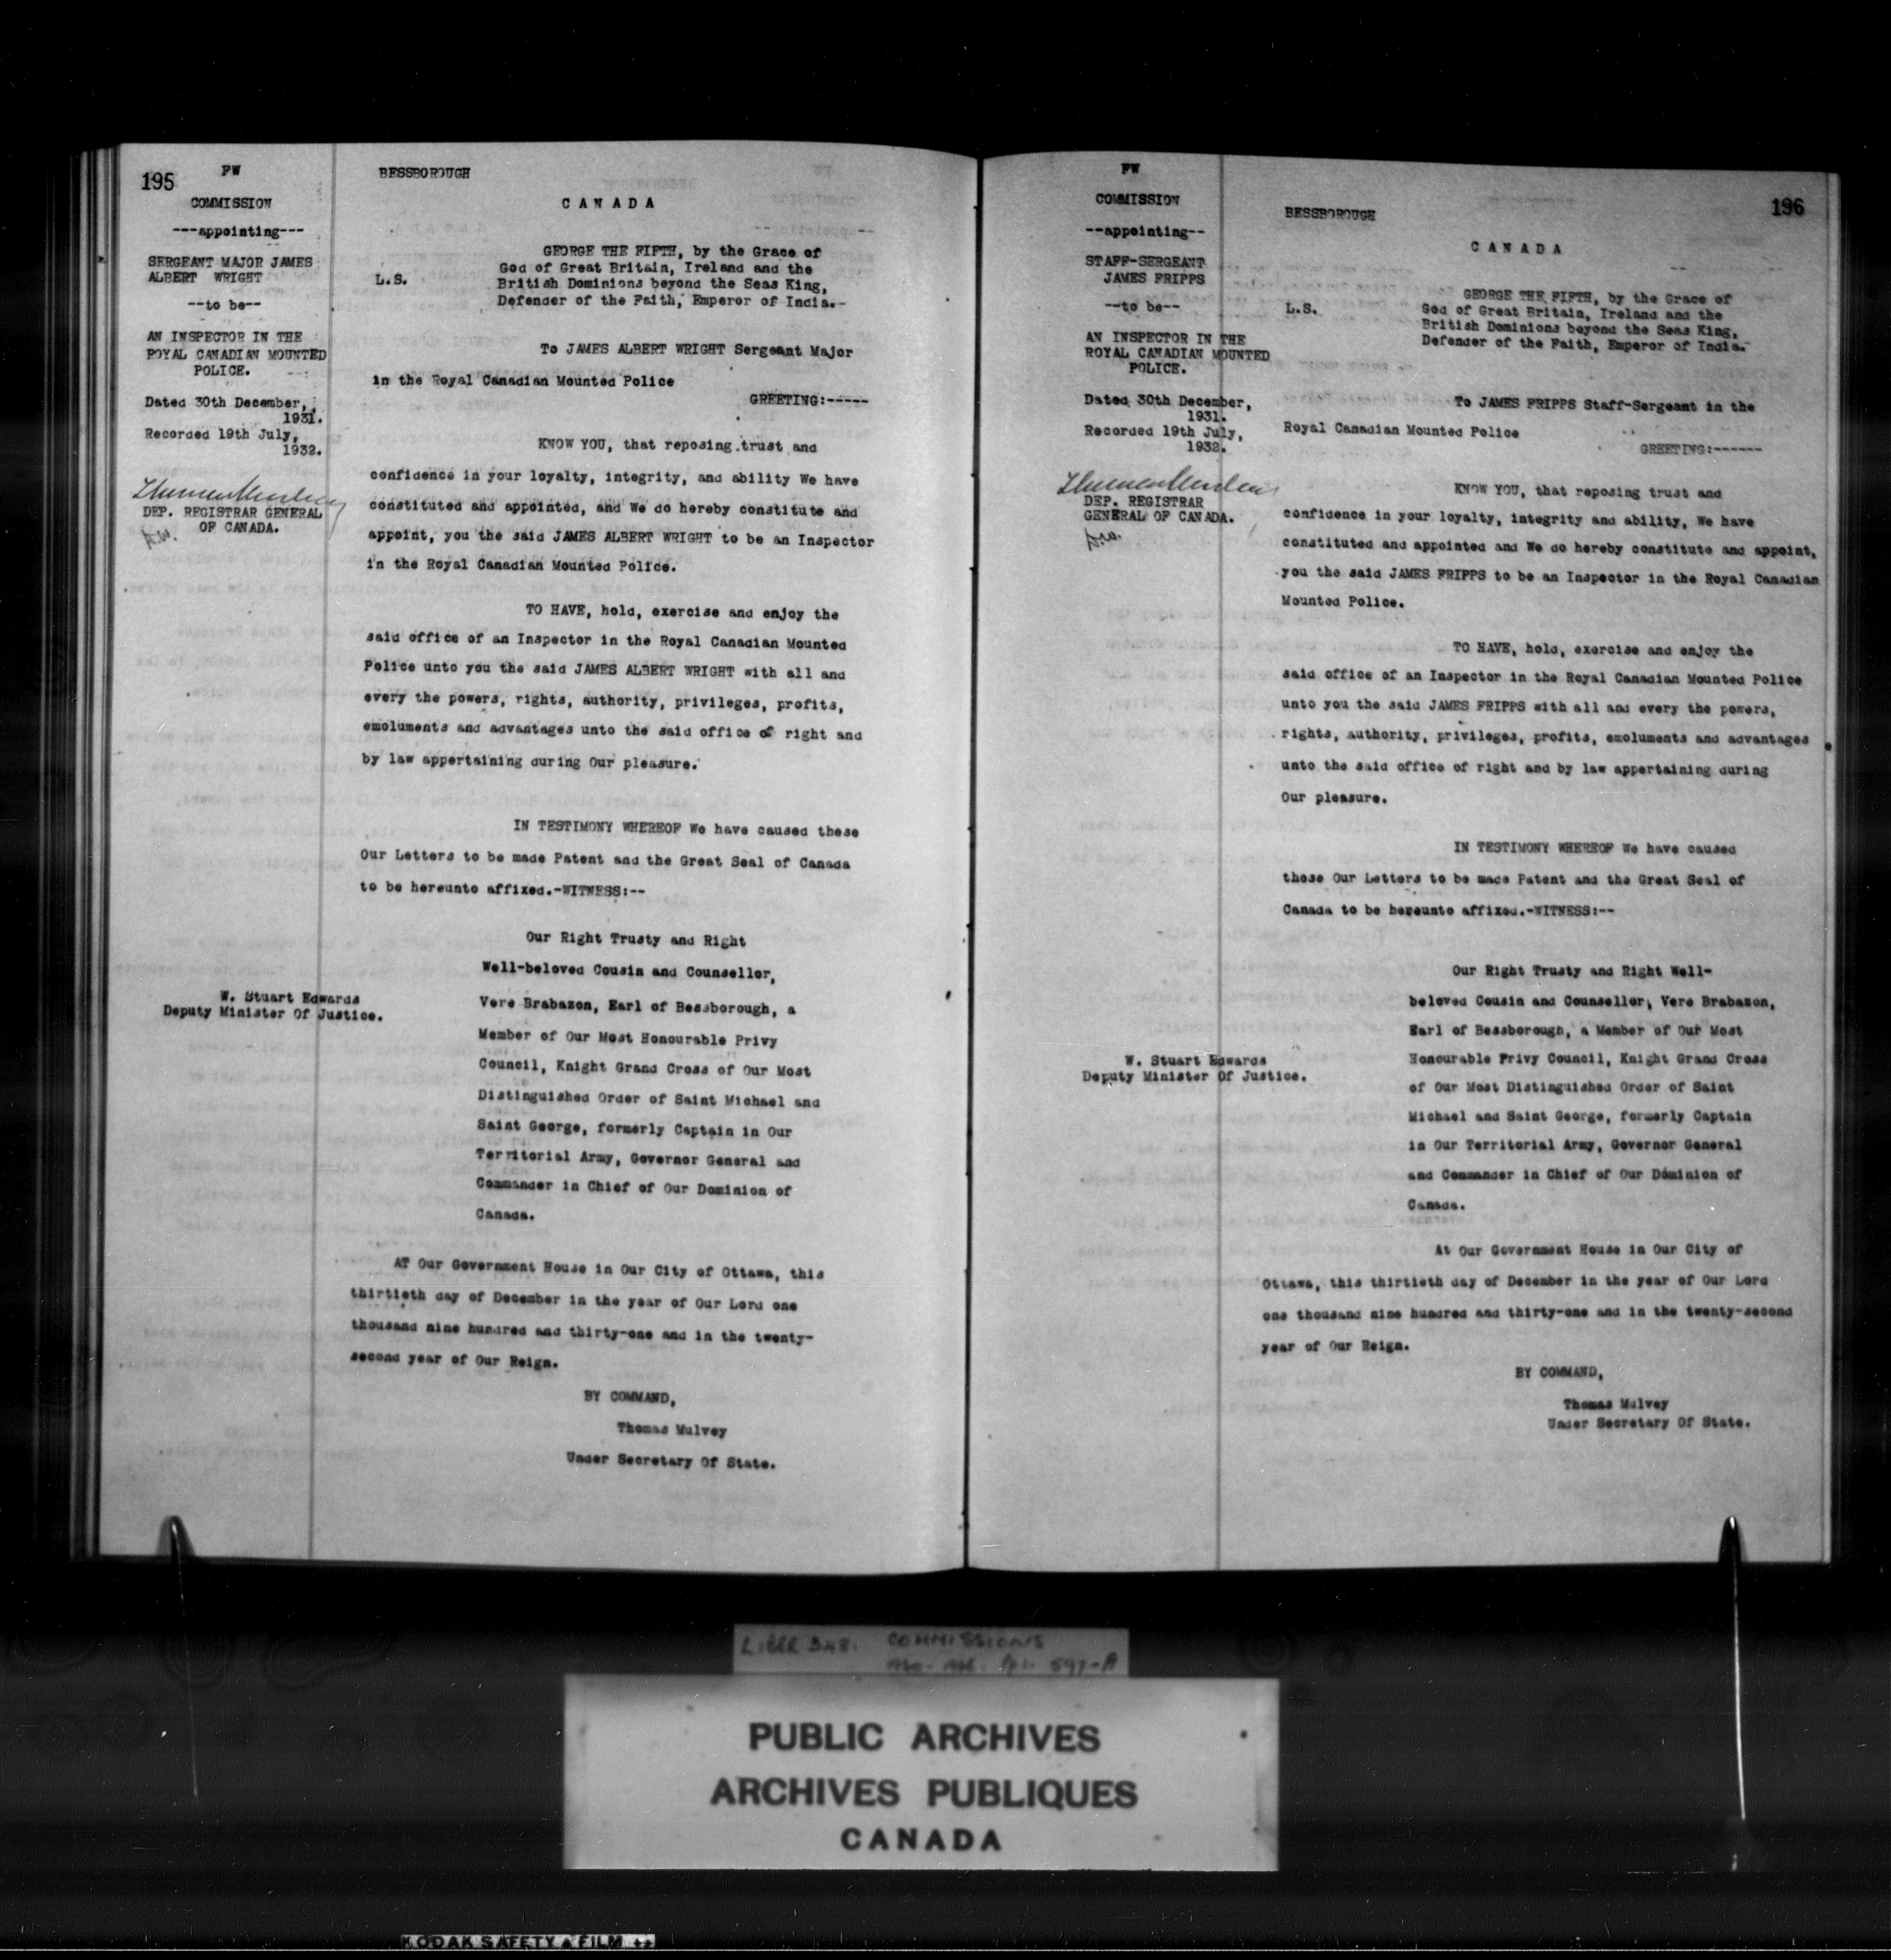 195
FW
COMMISSION
---appointing---
SERGEANT MAJOR JAMES
ALBERT WRIGHT
--to be--
AN INSPECTOR IN THE
ROYAL CANADIAN MOUNTED
POLICE.
Dated 30th December,
1931.
Recorded 19th July,
1932.
DEP. REGISTRAR GENERAL
OF CANADA.
W. Stuart Edwards
Deputy Minister Of Justice.
BESSBOROUGH
CANADA
L.S.
GEORGE THE FIFTH, by the Grace of
God of Great Britain, Ireland and the
British Dominions beyond the Seas King,
Defender of the Faith, Emperor of India.-
To JAMES ALBERT WRIGHT Sergeant Major
in the Royal Canadian Mounted Police
GREETING:-----
KNOW YOU, that reposing trust and
confidence in your loyalty, integrity, and ability We have
constituted and appointed, and We do hereby constitute and
appoint, you the said JAMES ALBERT WRIGHT to be an Inspector
in the Royal Canadian Mounted Police.
TO HAVE, hold, exercise and enjoy the
said office of an Inspector in the Royal Canadian Mounted
Police unto you the said JAMES ALBERT WRIGHT with all and
every the powers, rights, authority, privileges, profits,
emoluments and advantages unto the said office of right and
by law appertaining during Our pleasure.
IN TESTIMONY WHEREOF We have caused these
Our Letters to be made Patent and the Great Seal of Canada
to be hereunto affixed.-WITNESS:--
Our Right Trusty and Right
Well-beloved Cousin and Counsellor,
Vere Brabazon, Earl of Bessborough, a
Member of Our Most Honourable Privy
Council, Knight Grand Cross of Our Most
Distinguished Order of Saint Michael and
Saint George, formerly Captain in Our
Territorial Army, Governor General and
Commander in Chief of Our Dominion of
Canada.
AT Our Government House in Our City of Ottawa, this
thirtieth day of December in the year of Our Lord one
thousand nine hundred and thirty-one and in the twenty-
second year of Our Reign.
BY COMMAND,
Thomas Mulvey
Under Secretary Of State.
196
FW
COMMISSION
--appointing--
STAFF-SERGEANT
JAMES FRIPPS
--to be--
AN INSPECTOR IN THE
ROYAL CANADIAN MOUNTED
POLICE.
Dated 30th December,
1931.
Recorded 19th July,
1932.
DEP. REGISTRAR
GENERAL OF CANADA.
W. Stuart Edwards
Deputy Minister Of Justice.
BESSBOROUGH
CANADA
L.S.
GEORGE THE FIFTH, by the Grace of
God of Great Britain, Ireland and the
British Dominions beyond the Seas King,
Defender of the Faith, Emperor of India.-
To JAMES FRIPPS Staff-Sergeant in the
Royal Canadian Mounted Police
GREETING:------
KNOW YOU, that reposing trust and
confidence in your loyalty, integrity and ability, We have
constituted and appointed and We do hereby constitute and appoint,
you the said JAMES FRIPPS to be an Inspector in the Royal Canadian
Mounted Police.
TO HAVE, hold, exercise and enjoy the
said office of an Inspector in the Royal Canadian Mounted Police
unto you the said JAMES FRIPPS with all and every the powers,
rights, authority, privileges, profits, emoluments and advantages
unto the said office of right and by law appertaining during
Our pleasure.
IN TESTIMONY WHEREOF We have caused
these Our Letters to be made Patent and the Great Seal of
Canada to be hereunto affixed.-WITNESS:--
Our Right Trusty and Right Well-
beloved Cousin and Counsellor, Vere Brabazon,
Earl of Bessborough, a Member of Our Most
Honourable Privy Council, Knight Grand Cross
of Our Most Distinguished Order of Saint
Michael and Saint George, formerly Captain
in Our Territorial Army, Governor General
and Commander in Chief of Our Dominion of
Canada.
At Our Government House in Our City of
Ottawa, this thirtieth day of December in the year of Our Lord
one thousand nine hundred and thirty-one and in the twenty-second
year of Our Reign.
BY COMMAND,
Thomas Mulvey
Under Secretary Of State.
LIBER 348. COMMISSIONS
597-A
PUBLIC ARCHIVES
ARCHIVES PUBLIQUES
CANADA
KODAK SAFETY FILM